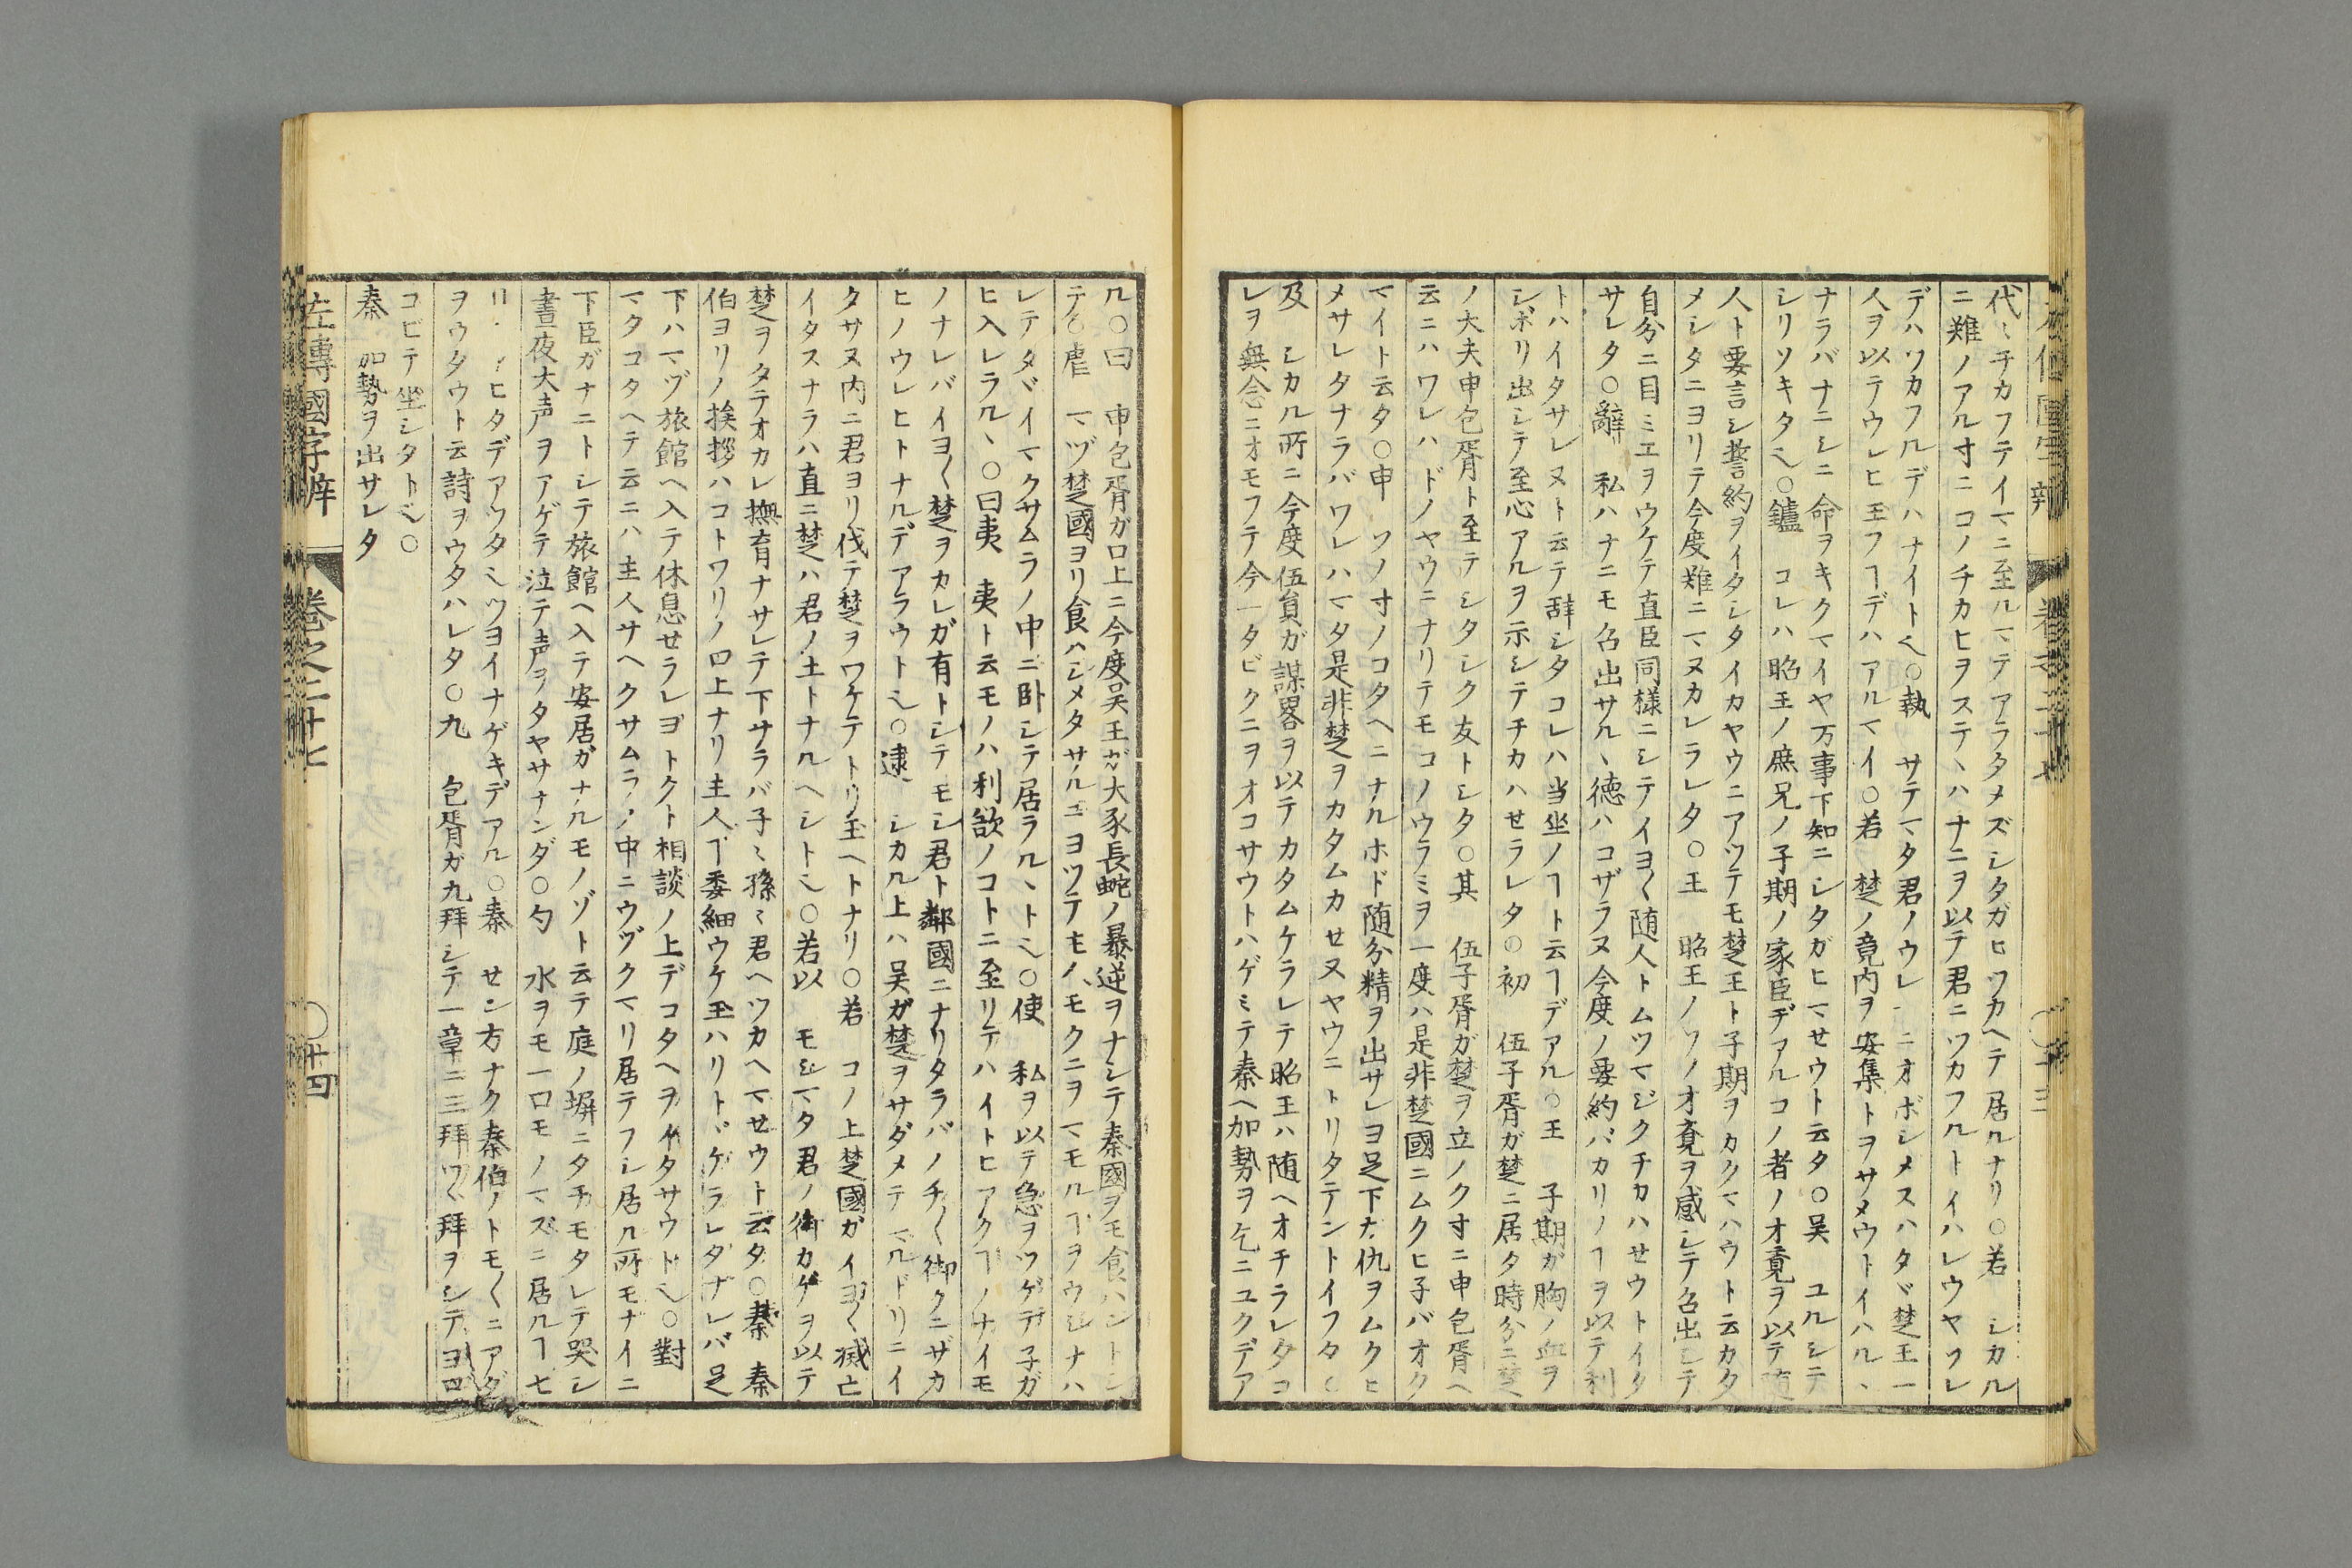 代〻チカフテイマニ至ルマテアラタメズシタガヒツカヘテ居ルナリ〇若 シカル
ニ難ノアル寸ニコノチカヒヲステヽハナニヲ以テ君ニツカフルトイハレウヤソレ
デハツカフルデハナイト也〇執 サテマタ君ノウレ ニオボシメスハタヾ楚王一
人ヲ以テウレヒ玉フヿデハアルマイ〇若 楚ノ竟内ヲ安集トヲサメウトイハルヽ
ナラバナニシニ命ヲキクマイヤ万事下知ニシタガヒマせウト云タ〇吴 ユルシテ
シリソキタ也〇鑪 コレハ昭王ノ庶兄ノ子期ノ家臣デアルコノ者ノオ覔ヲ以テ随
人ト要言シ誓約ヲイタシタイカヤウニアツテモ楚王ト子期ヲカクマハウト云カタ
メシタニヨリテ今度難ニマヌカレラレタ〇王 昭王ノソノオ覔ヲ感シテ召出シテ
自分ニ目ミエヲウケテ直臣同様ニシテイヨ〱随人トムツマジクチカハせウトイタ
サレタ〇辭 私ハナニモ召出サルヽ徳ハコザラヌ今度ノ要約バカリノヿヲ以テ利
トハイタサレヌト云テ辞シタコレハ当坐ノヿト云ヿデアル〇王 子期ガ胸ノ血ヲ
シボリ出シテ至心アルヲ示シテチカハせラレタ〇初 伍子胥ガ楚ニ居タ時分ニ楚
ノ大夫申包胥ト至テシタシク友トシタ〇其 伍子胥ガ楚ヲ立ノク寸ニ申包胥ヘ
云ニハワレハドノヤウニナリテモコノウラミヲ一度ハ是非楚國ニムクヒ子バオク
マイト云タ〇申 ソノ寸ノコタヘニナルホド随分精ヲ出サレヨ足下ナ仇ヲムクヒ
メサレタナラバワレハマタ是非楚ヲカタムカせヌヤウニトリタテントイフタ〇
及 シカル所ニ今度伍員ガ謀畧ヲ以テカタムケラレテ昭王ハ随ヘオチラレタコ
レヲ無念ニオモフテ今一タビクニヲオコサウトハゲミテ秦ヘ加勢ヲ乞ニユクデア
ル〇曰 申包胥ガ口上ニ今度吴王ガ大豕長蛇ノ暴逆ヲナシテ秦國ヲモ食ハントシ
テ〇虐 マヅ楚國ヨリ食ハシメタサルニヨツテモノヽモクニヲマモルヿヲウシナハ
レテタヾイマクサムラノ中ニ卧シテ居ラルヽト也〇使 私ヲ以テ急ヲツゲデ子ガ
ヒ入レラルヽ〇曰夷 夷ト云モノハ利欲ノコトニ至リテハイトヒアクヿノナイモ
ノナレバイヨ〱楚ヲカレガ有トシテモシ君ト鄰國ニナリタラバノチ〱御クニザカ
ヒノウレヒトナルデアラウト也〇逮 シカル上ハ吴ガ楚ヲサダメテ マルドリニイ
タサヌ内ニ君ヨリ伐テ楚ヲワケテトリ玉ヘトナリ〇若 コノ上楚國ガイヨ〱滅亡
イタスナラハ直ニ楚ハ君ノ土トナルヘシト也〇若以 モシマタ君ノ御カゲヲ以テ
楚ヲタテオカレ撫育ナサレテ下サラバ子〻孫〻君ヘツカヘマせウト云タ〇秦 秦
伯ヨリノ挨拶ハコトワリノ口上ナリ主人ヿ委細ウケ玉ハリトヾゲラレタナレバ足
下ハマヅ旅館ヘ入テ休息せラレヨトクト相談ノ上デコタヘヲイタサウト也〇對
マタコタヘテ云ニハ主人サヘクサムラノ中ニウヅクマリ居テフシ居ル所モナイニ
下臣ガナニトシテ旅館ヘ入テ安居ガナルモノゾト云テ庭ノ塀ニタチモタレテ哭シ
晝夜大声ヲアゲテ泣テ声ヲタヤサナンダ〇勺 水ヲモ一口モノマズニ居ルヿ七
日 ヒタデアツタ也ツヨイナゲキデアル〇秦 せン方ナク秦伯ノトモ〱ニアダ
ヲウタウト云詩ヲウタハレタ〇九 包胥ガ九拜シテ一章ニ三拜ヅヽ拜ヲシテヨロ
コビテ坐シタト也〇
秦 加勢ヲ出サレタ
左傳國字辨 卷之二十七 〇十四